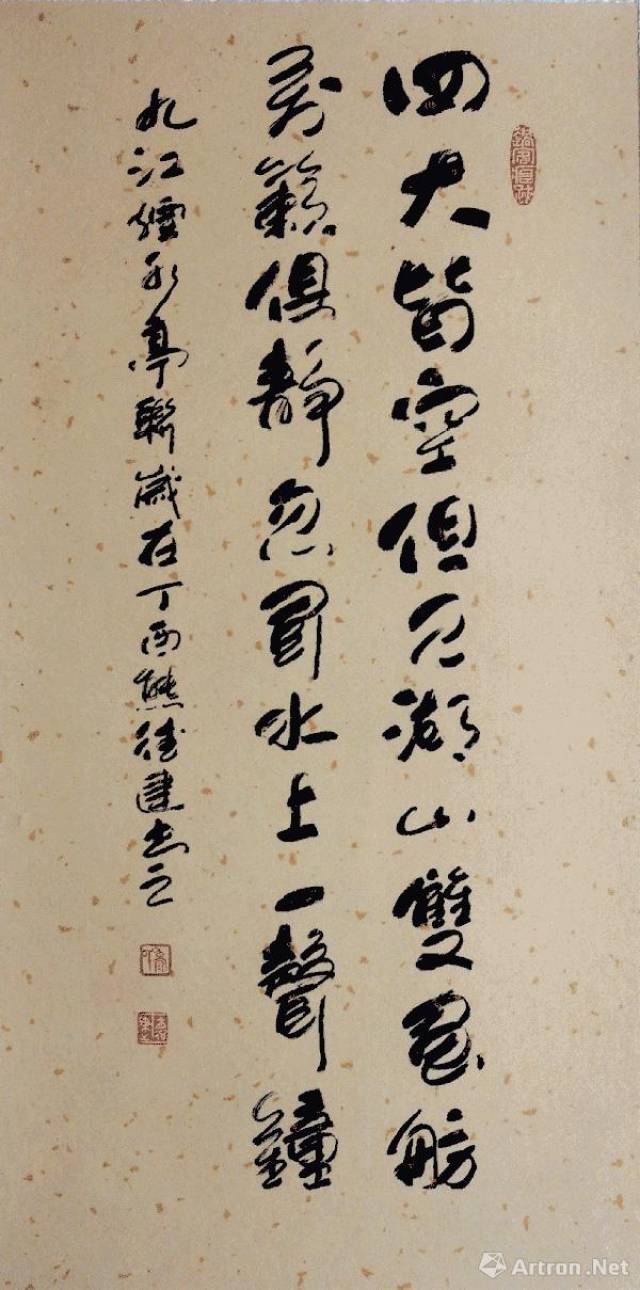 四大皆空但見湖山雙畫舫
萬籟俱靜忽聞水上一聲鐘
九江煙水亭聯歲在丁酉熊德建書之
Artron.Net